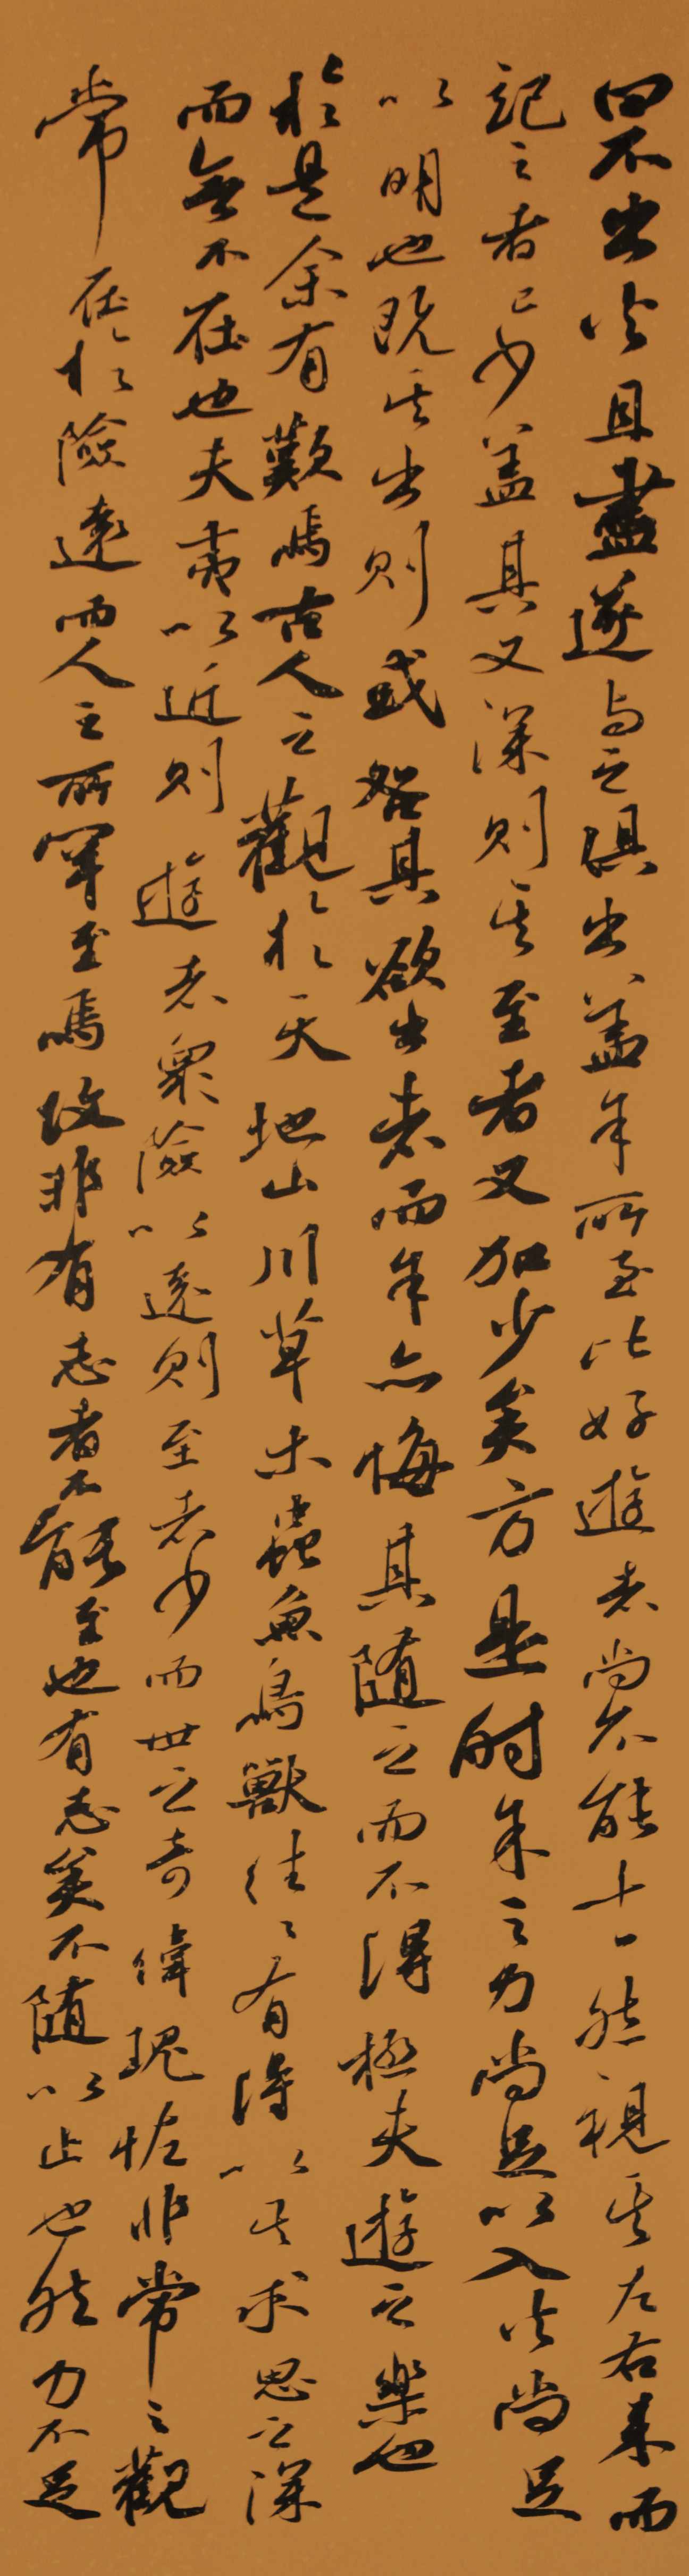 曰不出火且盡遂與之俱出蓋予所至比好遊者尚不能十一然視其左右來而
記之者已少蓋其又深則其至者又加少矣方是時予之力尚足以入火尚足
以明也既其出則或咎其欲出者而予亦悔其隨之而不得極夫遊之樂也
於是余有歎焉古人之觀於天地山川草木蟲魚鳥獸往々有得以其求思之深
而無不在也夫夷以近則遊者眾險以遠則至者少而世之奇偉瑰怪非常之觀
常在於險遠而人之所罕至焉故非有志者不能至也有志矣不隨以止也然力不足